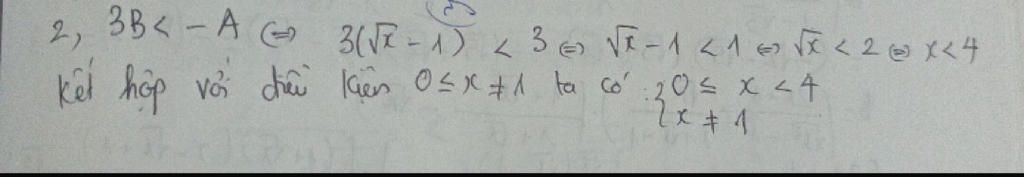 2, 3B < - A ⇔ 3(√x - 1) < 3 ⇔ √x - 1 < 1 ⇔ √x < 2 ⇔ x < 4
kết hợp với điều kiện 0 ≤ x ≠ 1 ta có { 0 ≤ x < 4
{ x ≠ 1